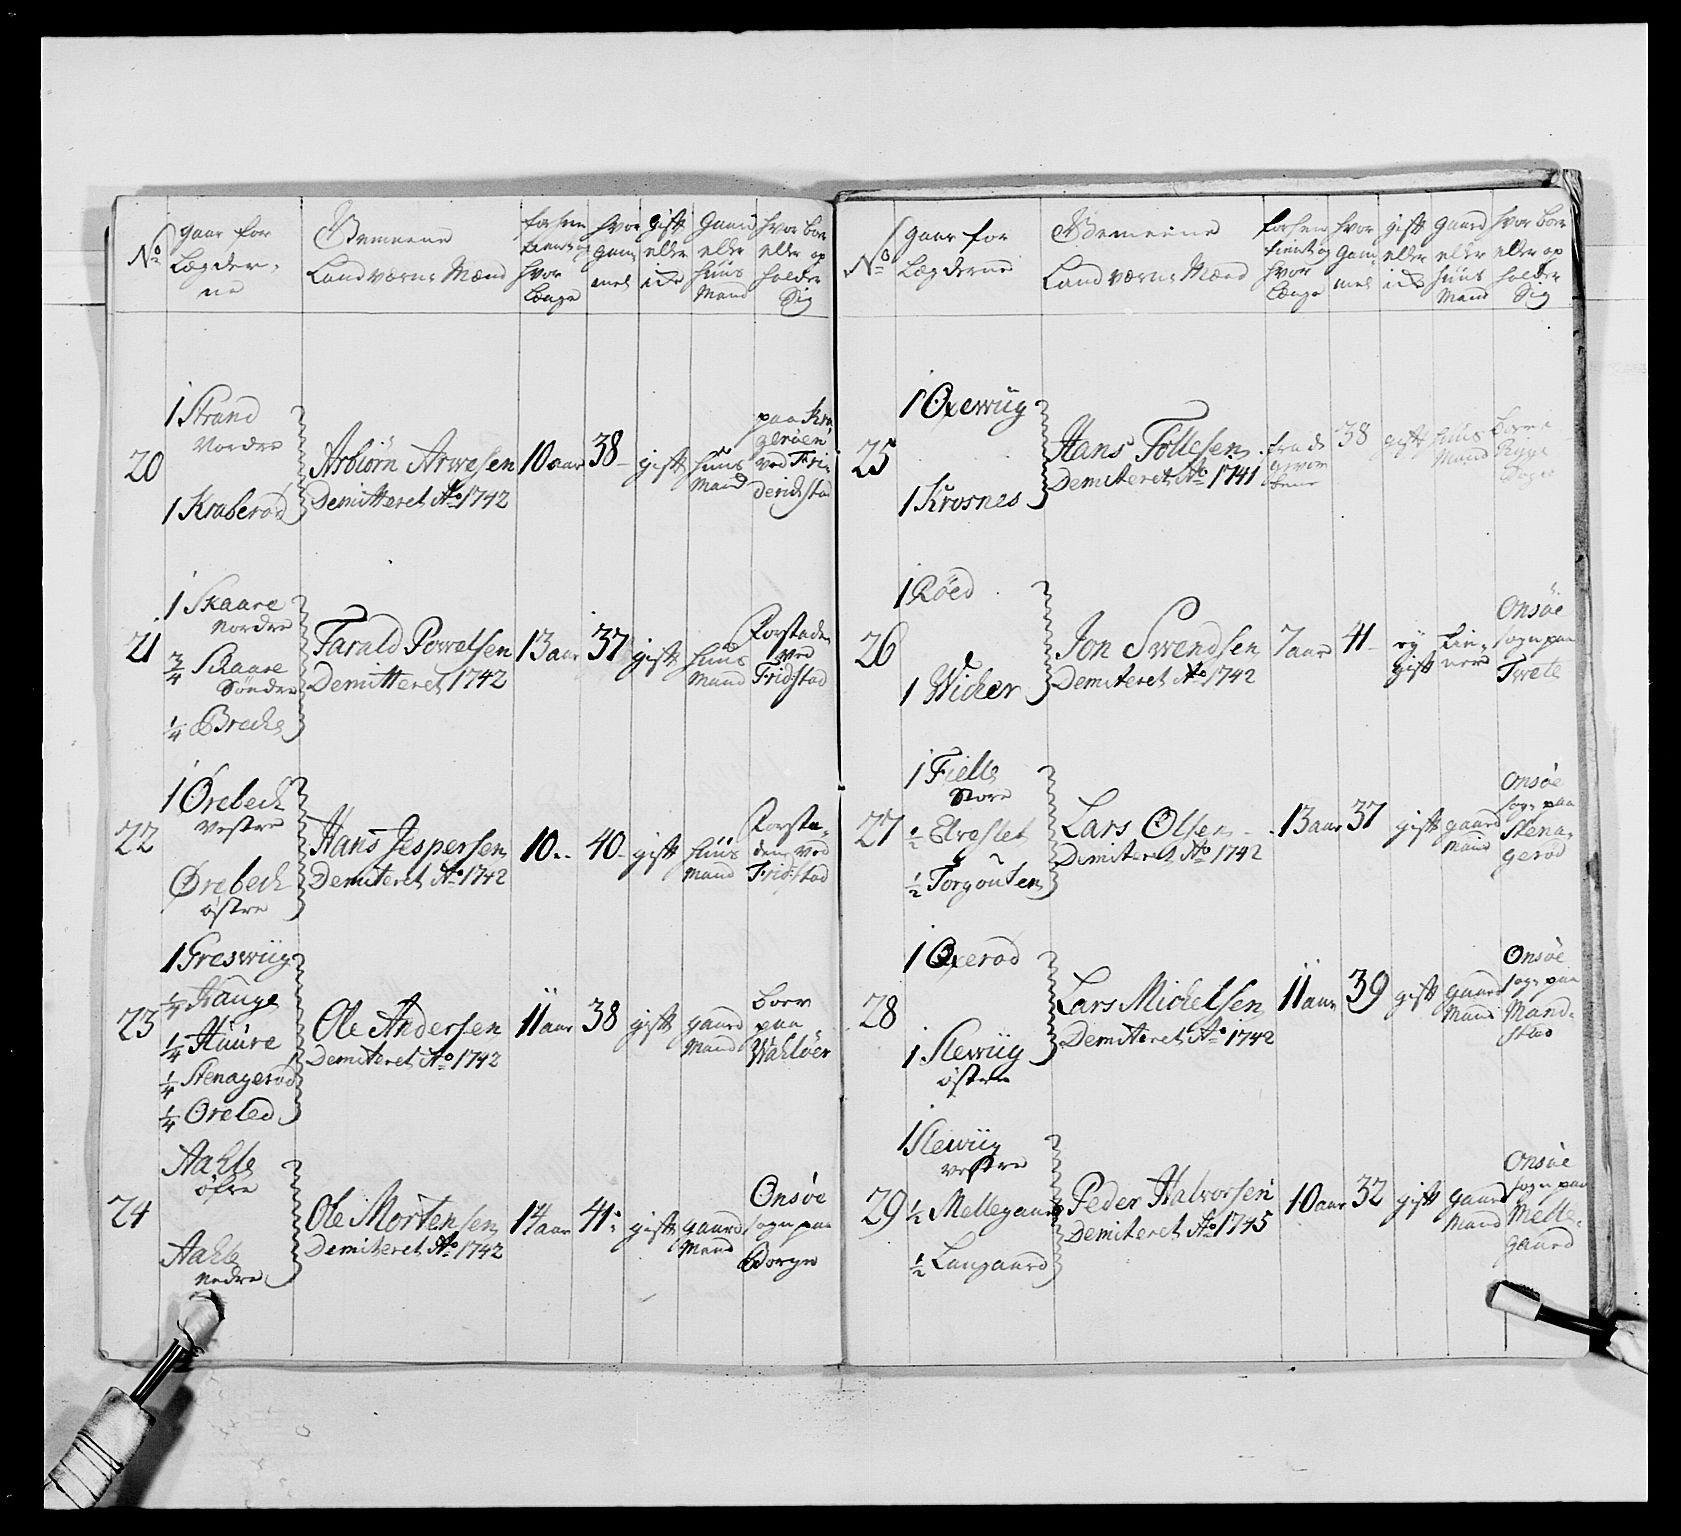 No
gaar for
Lægder-
ne
Gemeene
Landværns Mænd
forhen
tient og
hvor
Længe
hvor
gam-
mel
gift
eller
ide
gaard
eller
huus
Mand
hvor boer
eller op
holder
Sig
20
1 Strand
Nordre
1 Kraberød
Arbiörn Arwesen
Demitteret Ao 1742
10 aar
38
gift
huus
Mand
paa Kra
gerøen
ved Fri
derichstad
21
1 Skaare
Nordre
3/4 Skaare
Søndre
1/4 Breche
Tarald Powelsen
Demitteret 1742
13 aar
37
gift
huus
Mand
Forstaden
ved
Fridstad
22
1 Ørebech
Vestre
Ørebech
østre
Hans Jespersen
Demiteret Ao 1742
10
40
gift
huus
Mand
Forsta-
den ved
Fridstad
23
1 Greswiig
1/4 Hauge
1/4 Huure
1/4 Stenagerød
1/4 Oreled
Ole Andersen
Demiteret Ao 1742
11 aar
38
gift
gaard
Mand
boer
paa
Wahløer
24
Aahle
øfre
Aahle
Nedre
Ole Mortensen
Demiteret Ao 1742
14 aar
41
gift
gaard
Mand
Onsøe
sogn paa
Borge
No
gaar for
Lægderne
Gemeine
Landværns Mænd
forhen
tient og
hvor
Længe
hvor
Gam-
mel
gift
eller
ide
gaard
eller
huus
Mand
hvor boer
eller op
holder
Sig
25
1 Oxewiig
1 Krosnes
Hans Tollesen
Demiteret Ao 1741
38
gift
huus
Mand
boer i
Rygge
Sogn
26
1 Røed
1 Wicker
Jon Swendsen
Demiteret Ao 1742
7 aar
41
ey
gift
tie-
ner
Onsøe
sogn paa
Twete
27
1 Fielle
Store
1/2 Elreslet
1/2 Torgouten
Lars Olsen
Demiteret Ao 1742
13 aar
37
gift
gaard
Mand
Onsøe
sogn paa
Stena-
gerød
28
1 Oxerød
1 Slewiig
østre
Lars Michelsen
Demitteret Ao 1742
11 aar
39
gift
gaard
Mand
Onsøe
sogn paa
Mand-
stad
29
1 Slewiig
vestre
1/2 Mellegaard
1/2 Langaard
Peder Halvorsen
Demiteret Ao 1745
10 aar
32
gift
gaard
Mand
Onsøe
sogn paa
Melle-
gaard